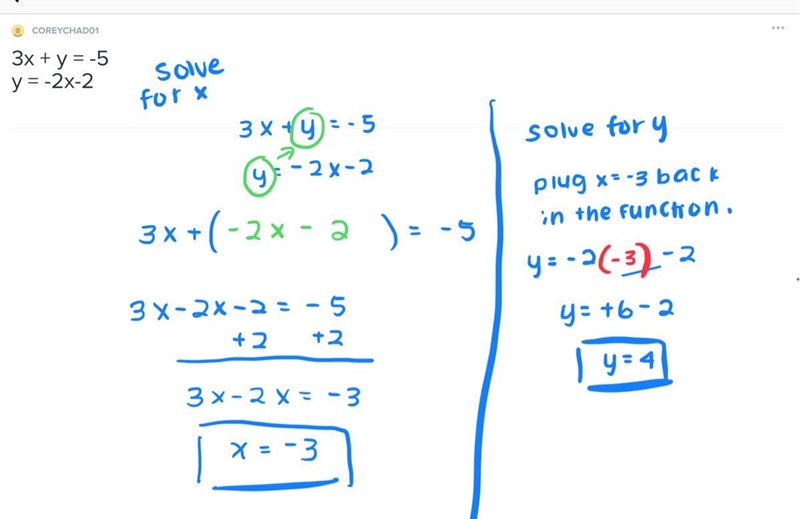 COREYCHAD01
3x + y = -5
y = -2x-2
solve
for x
3x + y = -5
y = -2x-2
3x + ( -2x - 2 ) = -5
3x-2x-2 = -5
+2 +2
3x-2x = -3
x = -3
solve for y
plug x=-3 back
in the function.
y = -2(-3)-2
y = +6-2
y = 4